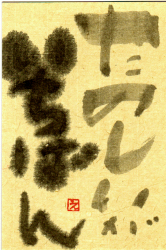 たのしが
いちばん